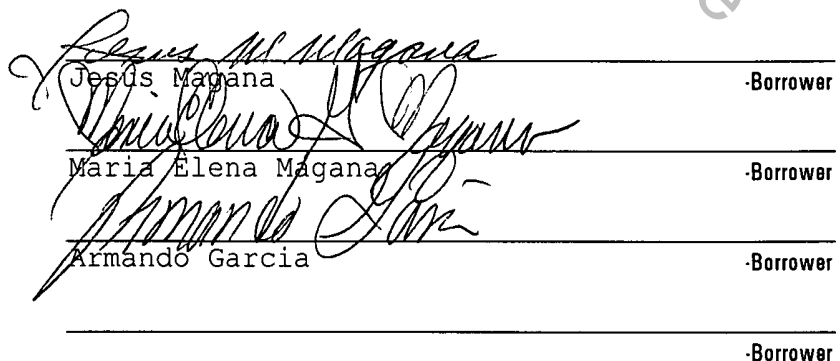 Jesus M Magana
Jesus Magana -Borrower
Maria Elena G Magana
Maria Elena Magana -Borrower
Armando Garcia
Armando Garcia -Borrower
-Borrower